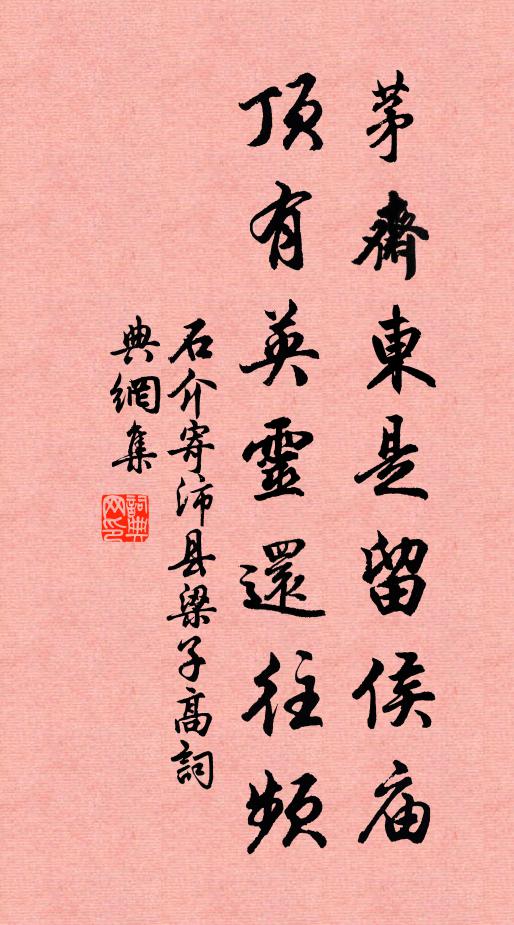 茅齋東是留侯庙
頂有英靈還往頻
石介寄沛县梁子高詞
典網集
詞典
网印